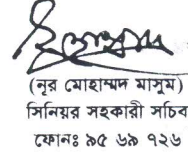 (নূর মোহাম্মদ মাসুম)
সিনিয়র সহকারী সচিব
ফোনঃ ৯৫ ৬৯ ৭২৬